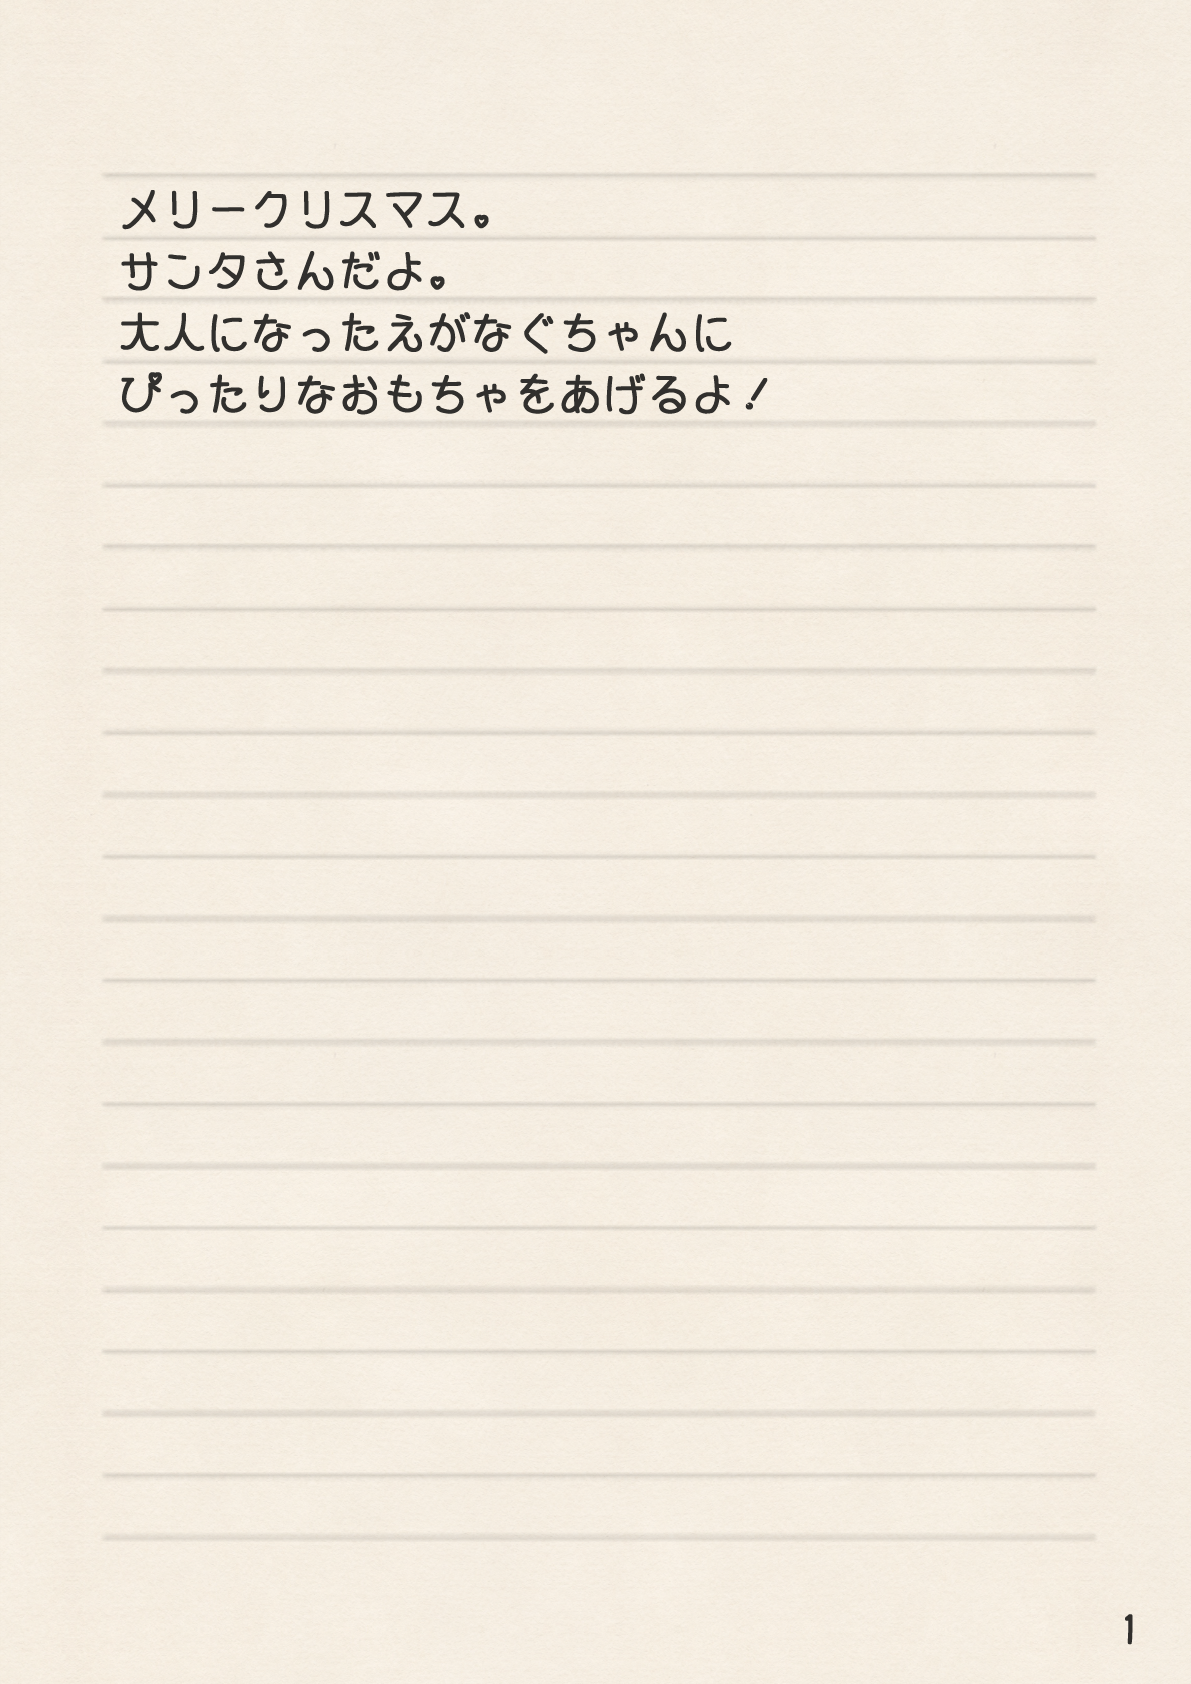 メリークリスマス。
サンタさんだよ。
大人になったえがなぐちゃんに
ぴったりなおもちゃをあげるよ!
1